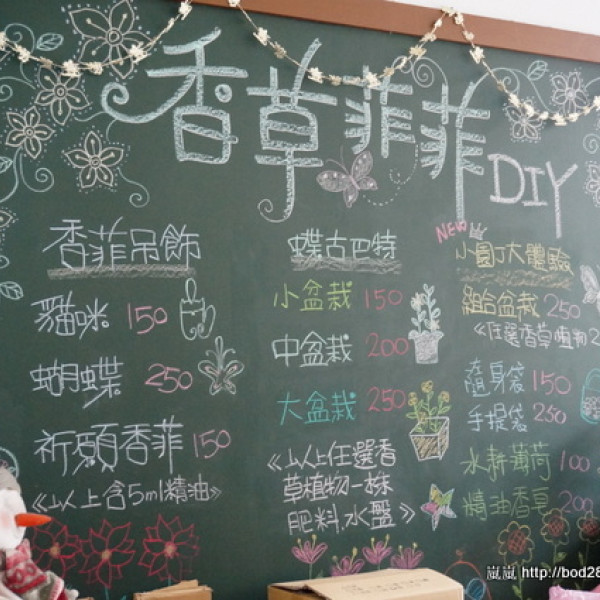 香草菲菲 DIY
香菲吊飾
貓咪 150
蝴蝶 250
祈願香菲 150
《以上含5ml精油》
蝶古巴特
小盆栽 150
中盆栽 200
大盆栽 250
《以上任選香
草植物一株
肥料.水盤》
NEW
小園丁大體驗
組合盆栽 250
《任選香草植物2
隨身袋 150
手提袋 250
水耕薄荷 100
精油香皂 200
嵐嵐 http://bod28